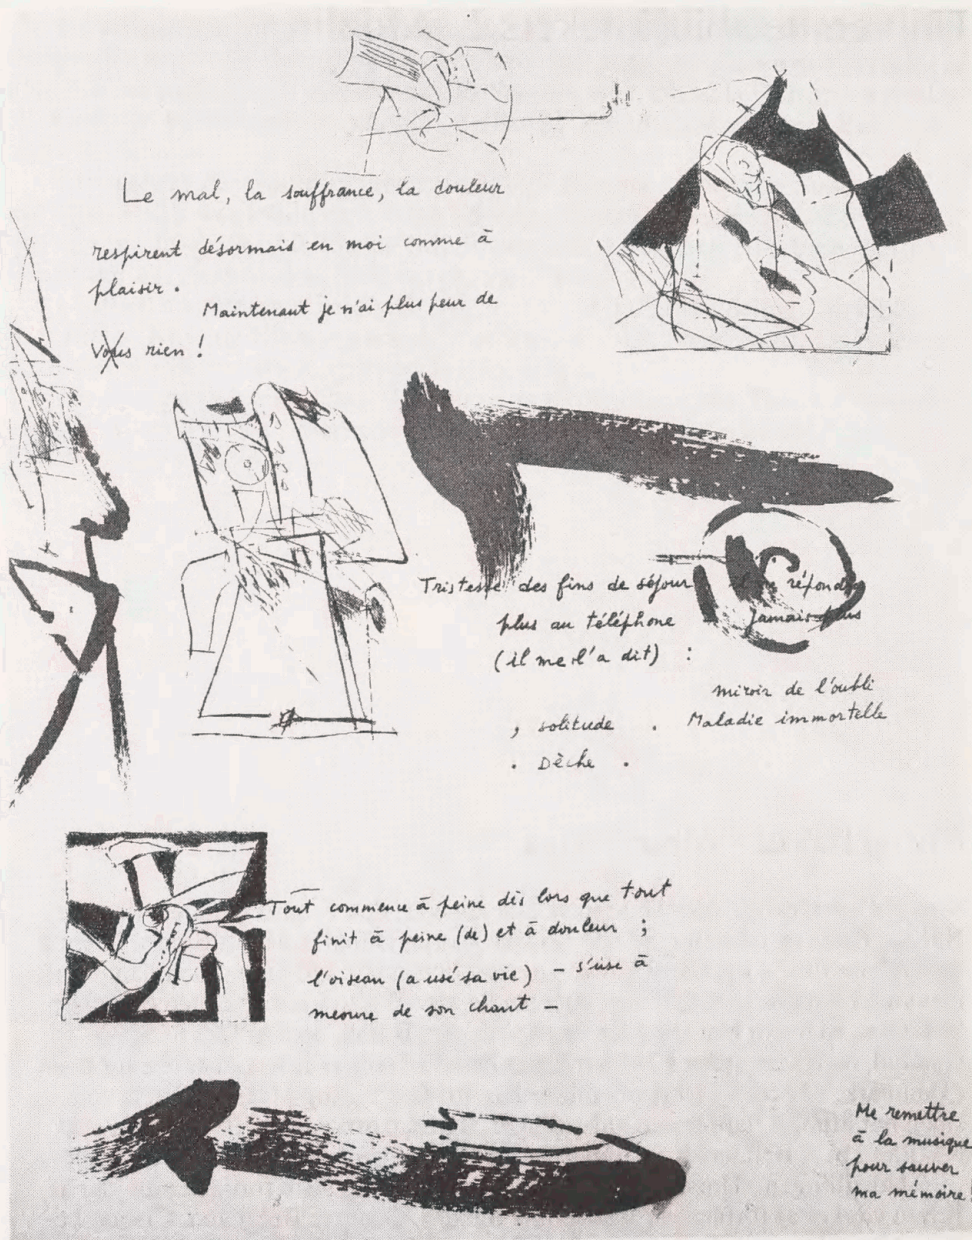 Le mal, la souffrance, la douleur
respirent désormais en moi comme à
plaisir.
Maintenant je n'ai plus peur de
Vous rien !
Tristesse des fins de séjour il ne répondra
plus au téléphone jamais plus
(il me l'a dit) :
miroir de l'oubli
, solitude . Maladie immortelle
. Dèche .
Tout commence à peine dès lors que tout
finit à peine (de) et à douleur ;
l'oiseau (a usé sa vie) – s'use à
mesure de son chant –
Me remettre
à la musique
pour sauver
ma mémoire !